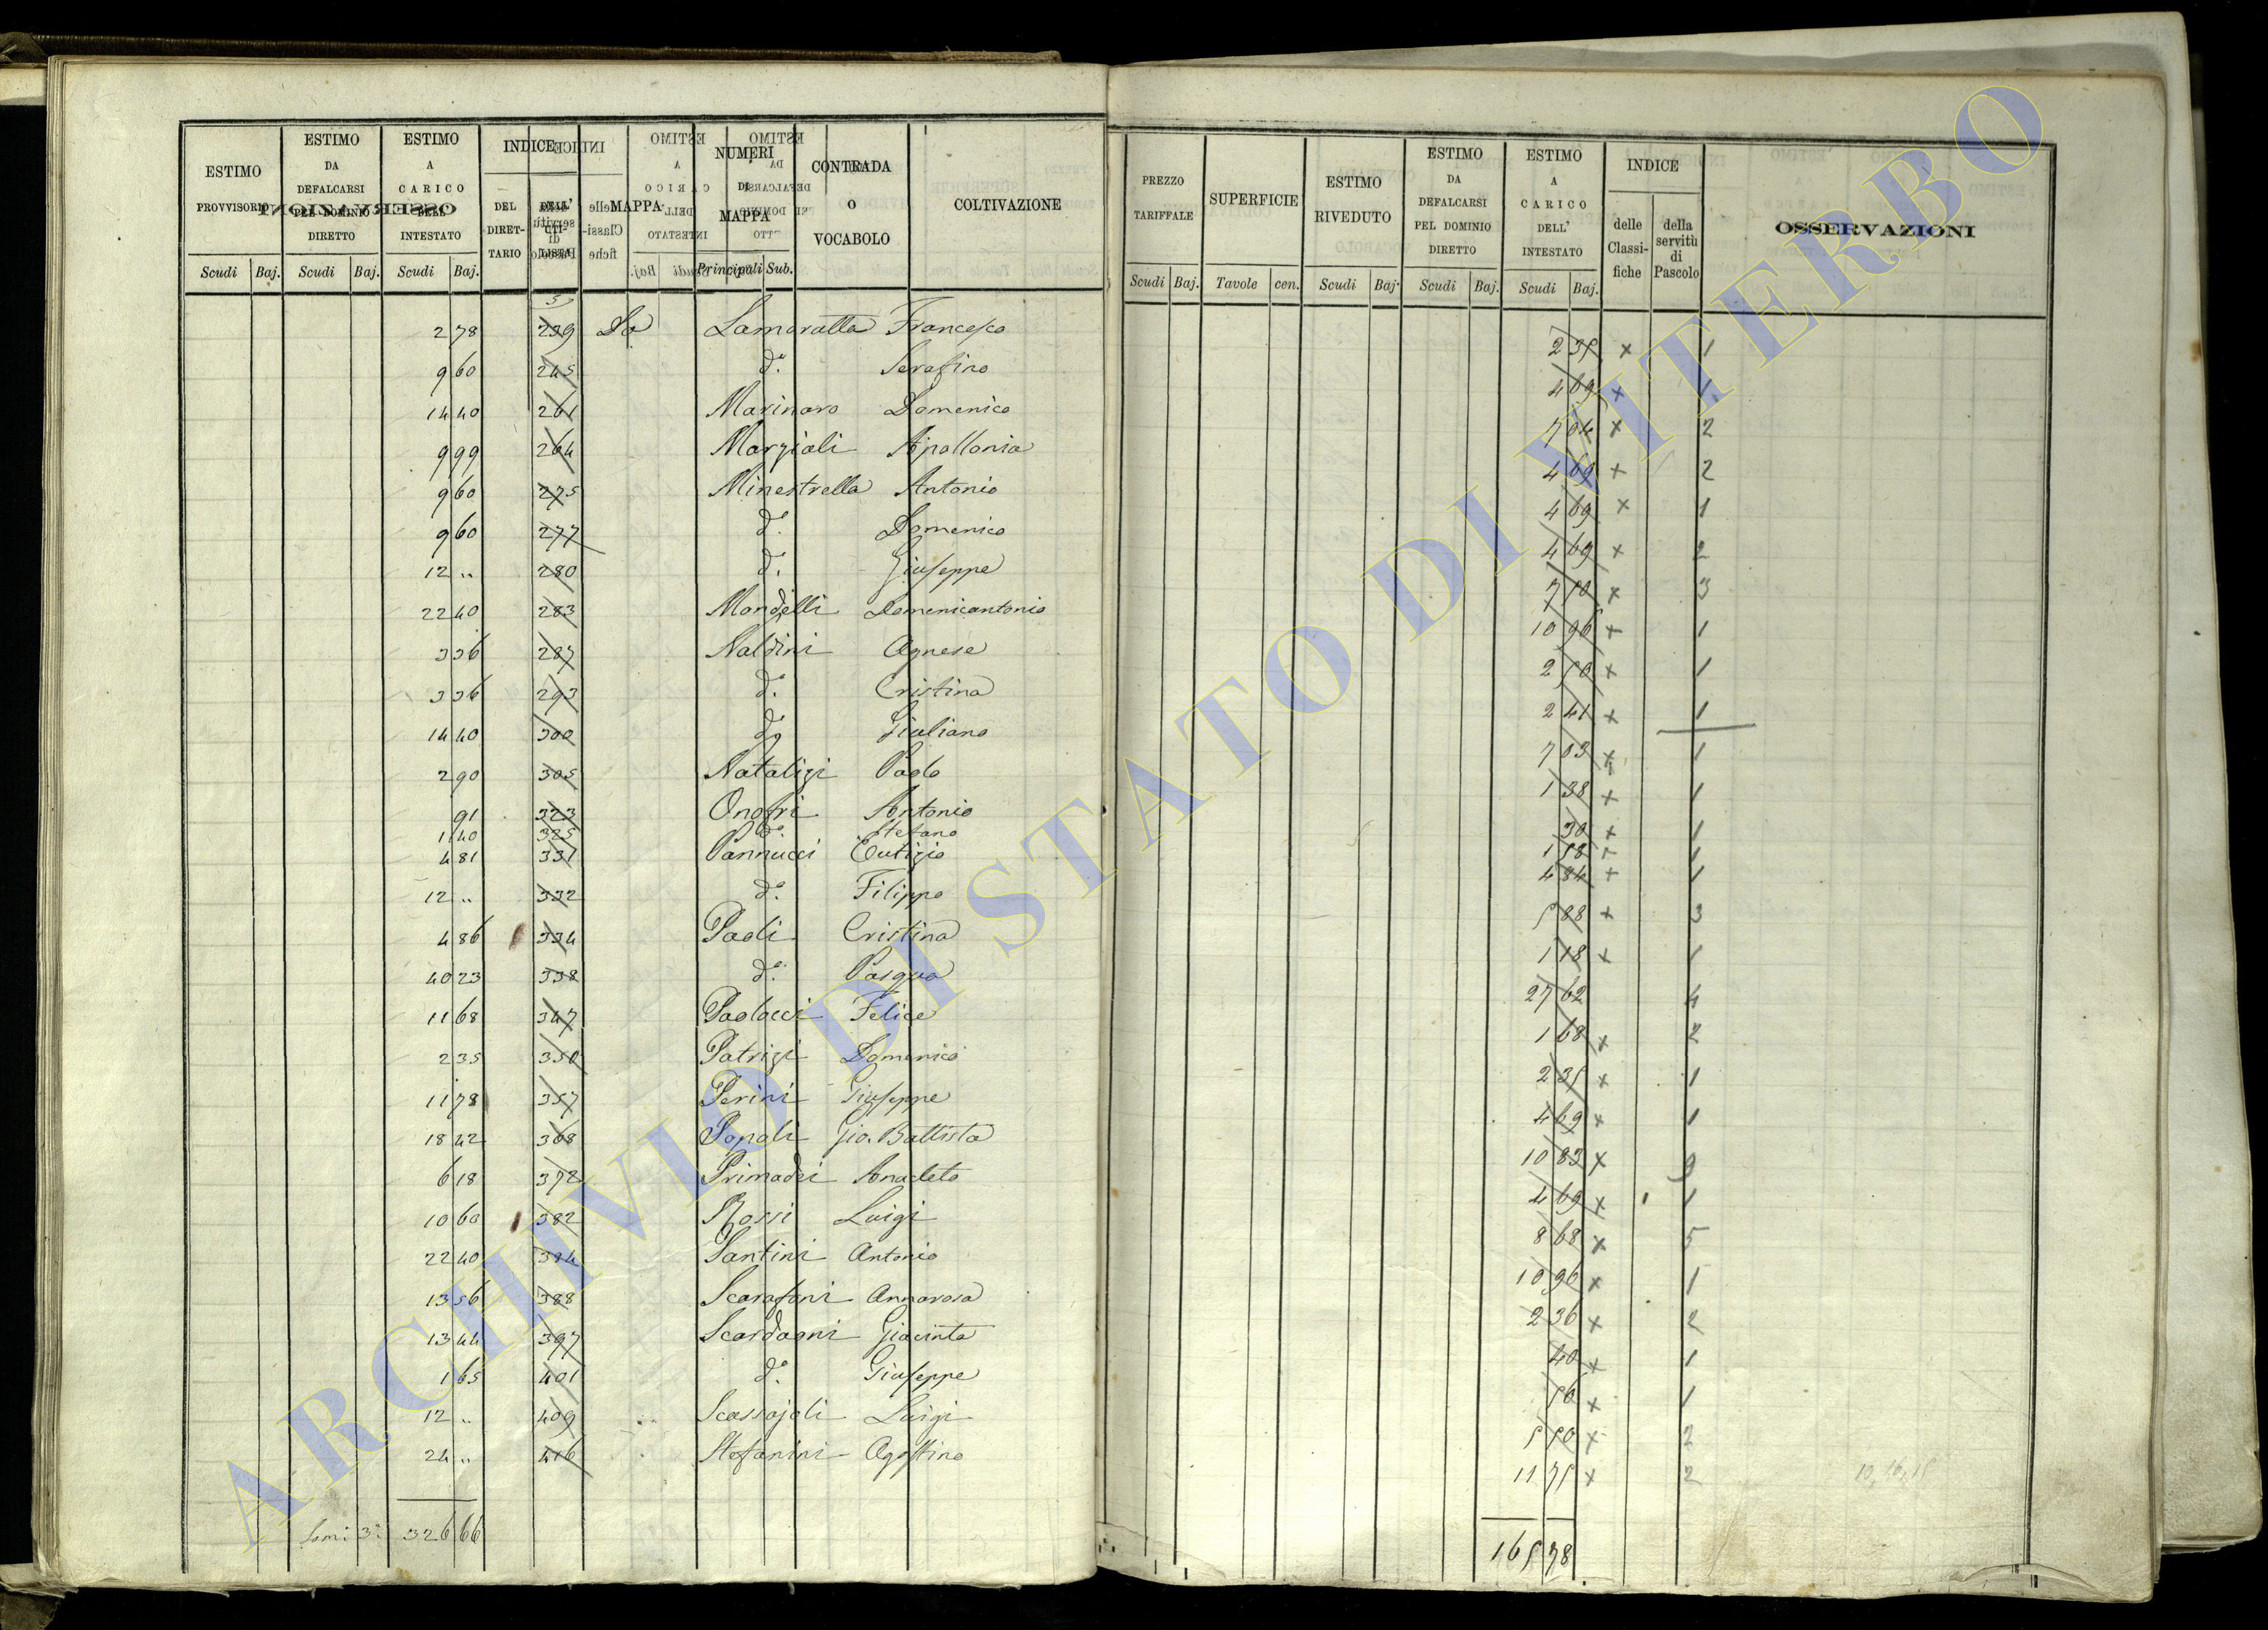 ESTIMO PROVVISORIO Scudi Baj.
ESTIMO DA DEFALCARSI PEL DOMINIO DIRETTO Scudi Baj.
ESTIMO A CARICO DELL' INTESTATO Scudi Baj.
INDICE DEL DIRETTARIO DELL' UTILISTA
MAPPA
NUMERI DI MAPPA Principali Sub.
CONTRADA O VOCABOLO
COLTIVAZIONE
PREZZO TARIFFALE Scudi Baj.
SUPERFICIE Tavole cen.
ESTIMO RIVEDUTO Scudi Baj.
ESTIMO DA DEFALCARSI PEL DOMINIO DIRETTO Scudi Baj.
ESTIMO A CARICO DELL' INTESTATO Scudi Baj.
INDICE delle Classifiche della servitù di Pascolo
OSSERVAZIONI
2 78 239 Lamoratta Francesco 2 35 x 1
9 60 245 d.° Serafino 4 69 x 1
14 40 261 Marinaro Domenico 7 04 x 2
9 99 264 Marziali Apollonia 4 69 x 2
9 60 275 Minestrella Antonio 4 69 x 1
9 60 277 d.° Domenico 4 69 x 2
12 .. 280 d.° Giuseppe 7 50 x 3
22 40 283 Mondelli Domenicantonio 10 96 x 1
3 36 287 Naldini Agnese 2 50 x 1
3 36 293 d.° Cristina 2 41 x 1
14 40 300 d.° Giuliano 7 03 x 1
2 90 305 Natalizi Paolo 1 38 x 1
91 323 Onofri Antonio 30 x 1
1 40 325 d.° Stefano 1 58 x 1
4 81 331 Pannucci Eutizio 4 84 x 1
12 .. 332 d.° Filippo 5 88 x 3
4 86 334 Paoli Cristina 1 18 x 1
40 23 338 d.° Pasqua 27 62 4
11 68 347 Paolacci Felice 1 68 x 2
2 35 350 Patrizi Domenico 2 35 x 1
11 78 357 Perini Giuseppe 4 69 x 1
18 42 368 Gio. Battista 10 83 x
6 18 372 Primadei Anacleto 4 69 x 1
10 60 382 Rossi Luigi 8 68 x 5
22 40 384 Santini Antonio 10 96 x 1
13 56 388 Scarafoni Annarosa 2 36 x 2
13 44 397 Scardaoni Giacinta 40 x 1
1 65 401 d.° Giuseppe 56 x 1
12 .. 409 Scassajoli Luigi 5 50 x 2
24 .. 416 Stefanini Agostino 11 75 x 2
326 66 165 78
ARCHIVIO DI STATO DI VITERBO